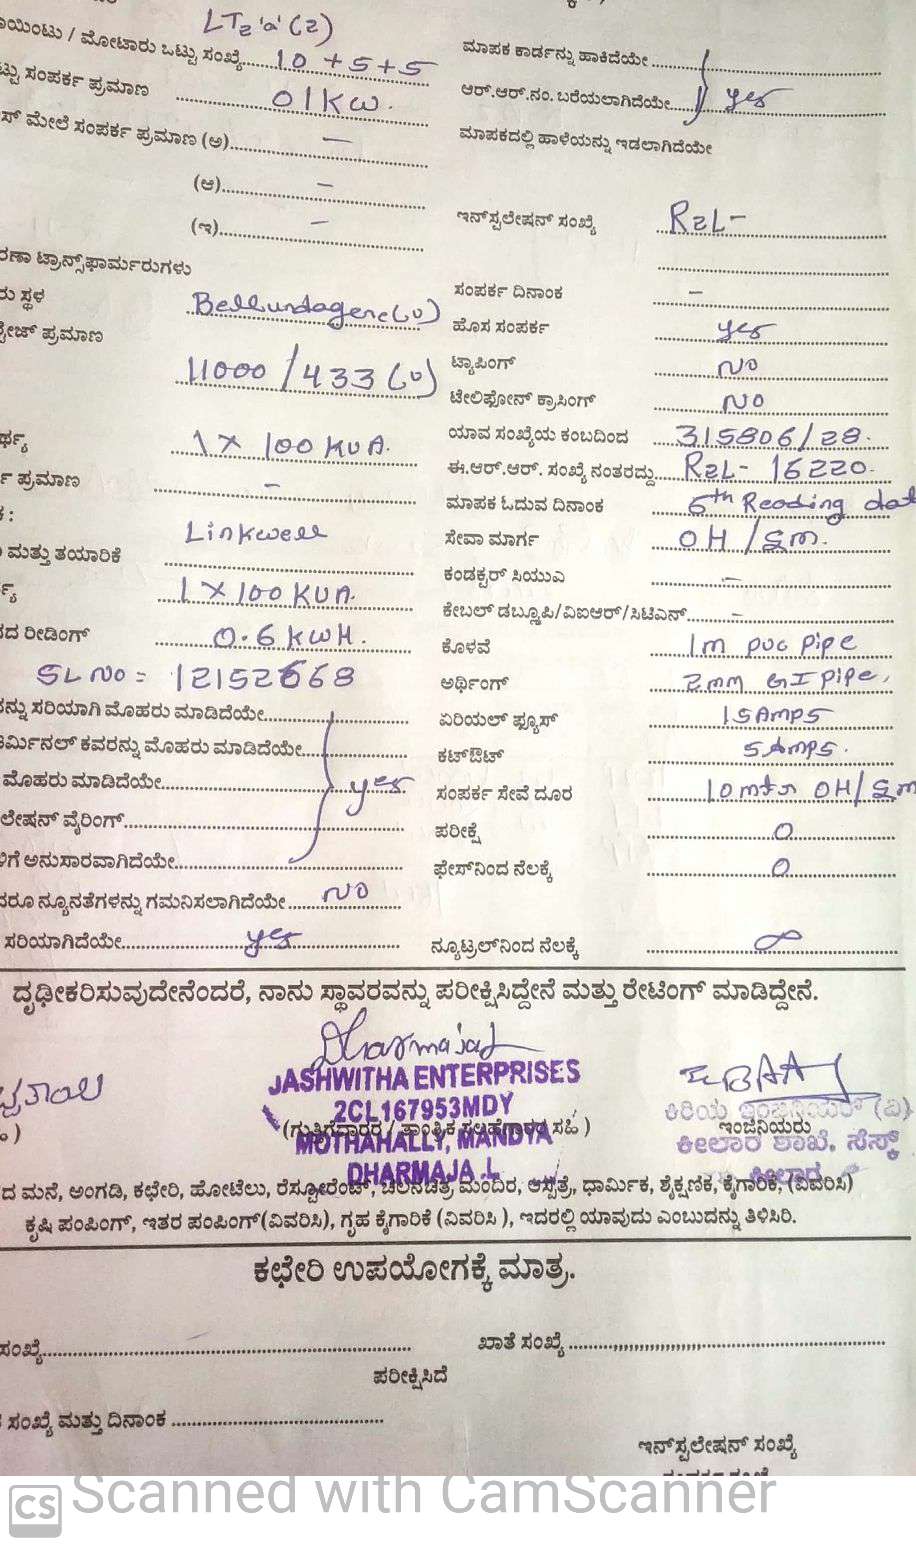 LT2 'a' (2)
ಾಯಿಂಟು / ಮೋಟಾರು ಒಟ್ಟು ಸಂಖ್ಯೆ 10 + 5 + 5
ಮಾಪಕ ಕಾರ್ಡನ್ನು ಹಾಕಿದೆಯೇ
ಟ್ಟು ಸಂಪರ್ಕ ಪ್ರಮಾಣ 01 KW.
ಆರ್.ಆರ್.ನಂ. ಬರೆಯಲಾಗಿದೆಯೇ yes
ಸ್ ಮೇಲೆ ಸಂಪರ್ಕ ಪ್ರಮಾಣ (ಅ) —
ಮಾಪಕದಲ್ಲಿ ಹಾಳೆಯನ್ನು ಇಡಲಾಗಿದೆಯೇ
(ಆ) —
(ಇ) —
ಇನ್‌ಸ್ಟಲೇಷನ್ ಸಂಖ್ಯೆ R2L-
ರಣಾ ಟ್ರಾನ್ಸ್‌ಫಾರ್ಮರುಗಳು
ರು ಸ್ಥಳ Bellundagere(v)
ಸಂಪರ್ಕ ದಿನಾಂಕ —
್ಟೇಜ್ ಪ್ರಮಾಣ
ಹೊಸ ಸಂಪರ್ಕ yes
11000 / 433 (v)
ಟ್ಯಾಪಿಂಗ್ NO
ಟೇಲಿಫೋನ್ ಕ್ರಾಸಿಂಗ್ NO
ರ್ಥ್ಯ 1 X 100 KVA.
ಯಾವ ಸಂಖ್ಯೆಯ ಕಂಬದಿಂದ 315806/28.
ರ್ ಪ್ರಮಾಣ —
ಈ.ಆರ್.ಆರ್. ಸಂಖ್ಯೆ ನಂತರದ್ದು R2L- 16220.
ಕ :
ಮಾಪಕ ಓದುವ ದಿನಾಂಕ 6th Reading dat
ಮತ್ತು ತಯಾರಿಕೆ Linkwell
ಸೇವಾ ಮಾರ್ಗ OH / Sm.
1 X 100 KVA.
ಕಂಡಕ್ಟರ್ ಸಿಯುಎ —
ಕೇಬಲ್ ಡಬ್ಲೂಪಿ/ವಿಐಆರ್/ಸಿಟಿಎನ್ —
ದ ರೀಡಿಂಗ್ 0.6 KWH.
ಕೊಳವೆ 1m PVC Pipe
SL NO = 12152668
ಅರ್ಥಿಂಗ್ 2mm GI Pipe,
ನ್ನು ಸರಿಯಾಗಿ ಮೊಹರು ಮಾಡಿದೆಯೇ
ಏರಿಯಲ್ ಫ್ಯೂಸ್ 15AMPS
ರ್ಮಿನಲ್ ಕವರನ್ನು ಮೊಹರು ಮಾಡಿದೆಯೇ
ಕಟ್‌ಔಟ್ 5 AMPS.
ಮೊಹರು ಮಾಡಿದೆಯೇ yes
ಸಂಪರ್ಕ ಸೇವೆ ದೂರ 10 mtr OH/ Sm
ಲೇಷನ್ ವೈರಿಂಗ್
ಪರೀಕ್ಷೆ 0
ಗೆ ಅನುಸಾರವಾಗಿದೆಯೇ
ಫೇಸ್‌ನಿಂದ ನೆಲಕ್ಕೆ 0
ದರೂ ನ್ಯೂನತೆಗಳನ್ನು ಗಮನಿಸಲಾಗಿದೆಯೇ NO
ಸರಿಯಾಗಿದೆಯೇ yes
ನ್ಯೂಟ್ರಲ್‌ನಿಂದ ನೆಲಕ್ಕೆ ∞
ದೃಢೀಕರಿಸುವುದೇನೆಂದರೆ, ನಾನು ಸ್ಥಾವರವನ್ನು ಪರೀಕ್ಷಿಸಿದ್ದೇನೆ ಮತ್ತು ರೇಟಿಂಗ್ ಮಾಡಿದ್ದೇನೆ.
JASHWITHA ENTERPRISES
2CL167953MDY
ಕಿರಿಯ ಇಂಜಿನಿಯರ್ (ವಿ)
(ಗುತ್ತಿಗೆದಾರರ / ತಾಂತ್ರಿಕ ಸಲಹೆಗಾರರ ಸಹಿ )
ಇಂಜಿನಿಯರು
MOTHAHALLY, MANDYA
ಕೀಲಾರ ಶಾಖೆ, ಸೆಸ್ಕ್
DHARMAJA .L
ಕೀಲಾರ
ದ ಮನೆ, ಅಂಗಡಿ, ಕಛೇರಿ, ಹೋಟೆಲು, ರೆಸ್ಟೋರೆಂಟ್, ಚಲನಚಿತ್ರ ಮಂದಿರ, ಆಸ್ಪತ್ರೆ, ಧಾರ್ಮಿಕ, ಶೈಕ್ಷಣಿಕ, ಕೈಗಾರಿಕೆ, (ವಿವರಿಸಿ)
ಕೃಷಿ ಪಂಪಿಂಗ್, ಇತರ ಪಂಪಿಂಗ್(ವಿವರಿಸಿ), ಗೃಹ ಕೈಗಾರಿಕೆ (ವಿವರಿಸಿ ), ಇದರಲ್ಲಿ ಯಾವುದು ಎಂಬುದನ್ನು ತಿಳಿಸಿರಿ.
ಕಛೇರಿ ಉಪಯೋಗಕ್ಕೆ ಮಾತ್ರ.
ಸಂಖ್ಯೆ
ಖಾತೆ ಸಂಖ್ಯೆ
ಪರೀಕ್ಷಿಸಿದೆ
ಸಂಖ್ಯೆ ಮತ್ತು ದಿನಾಂಕ
ಇನ್‌ಸ್ಟಲೇಷನ್ ಸಂಖ್ಯೆ
CS Scanned with CamScanner